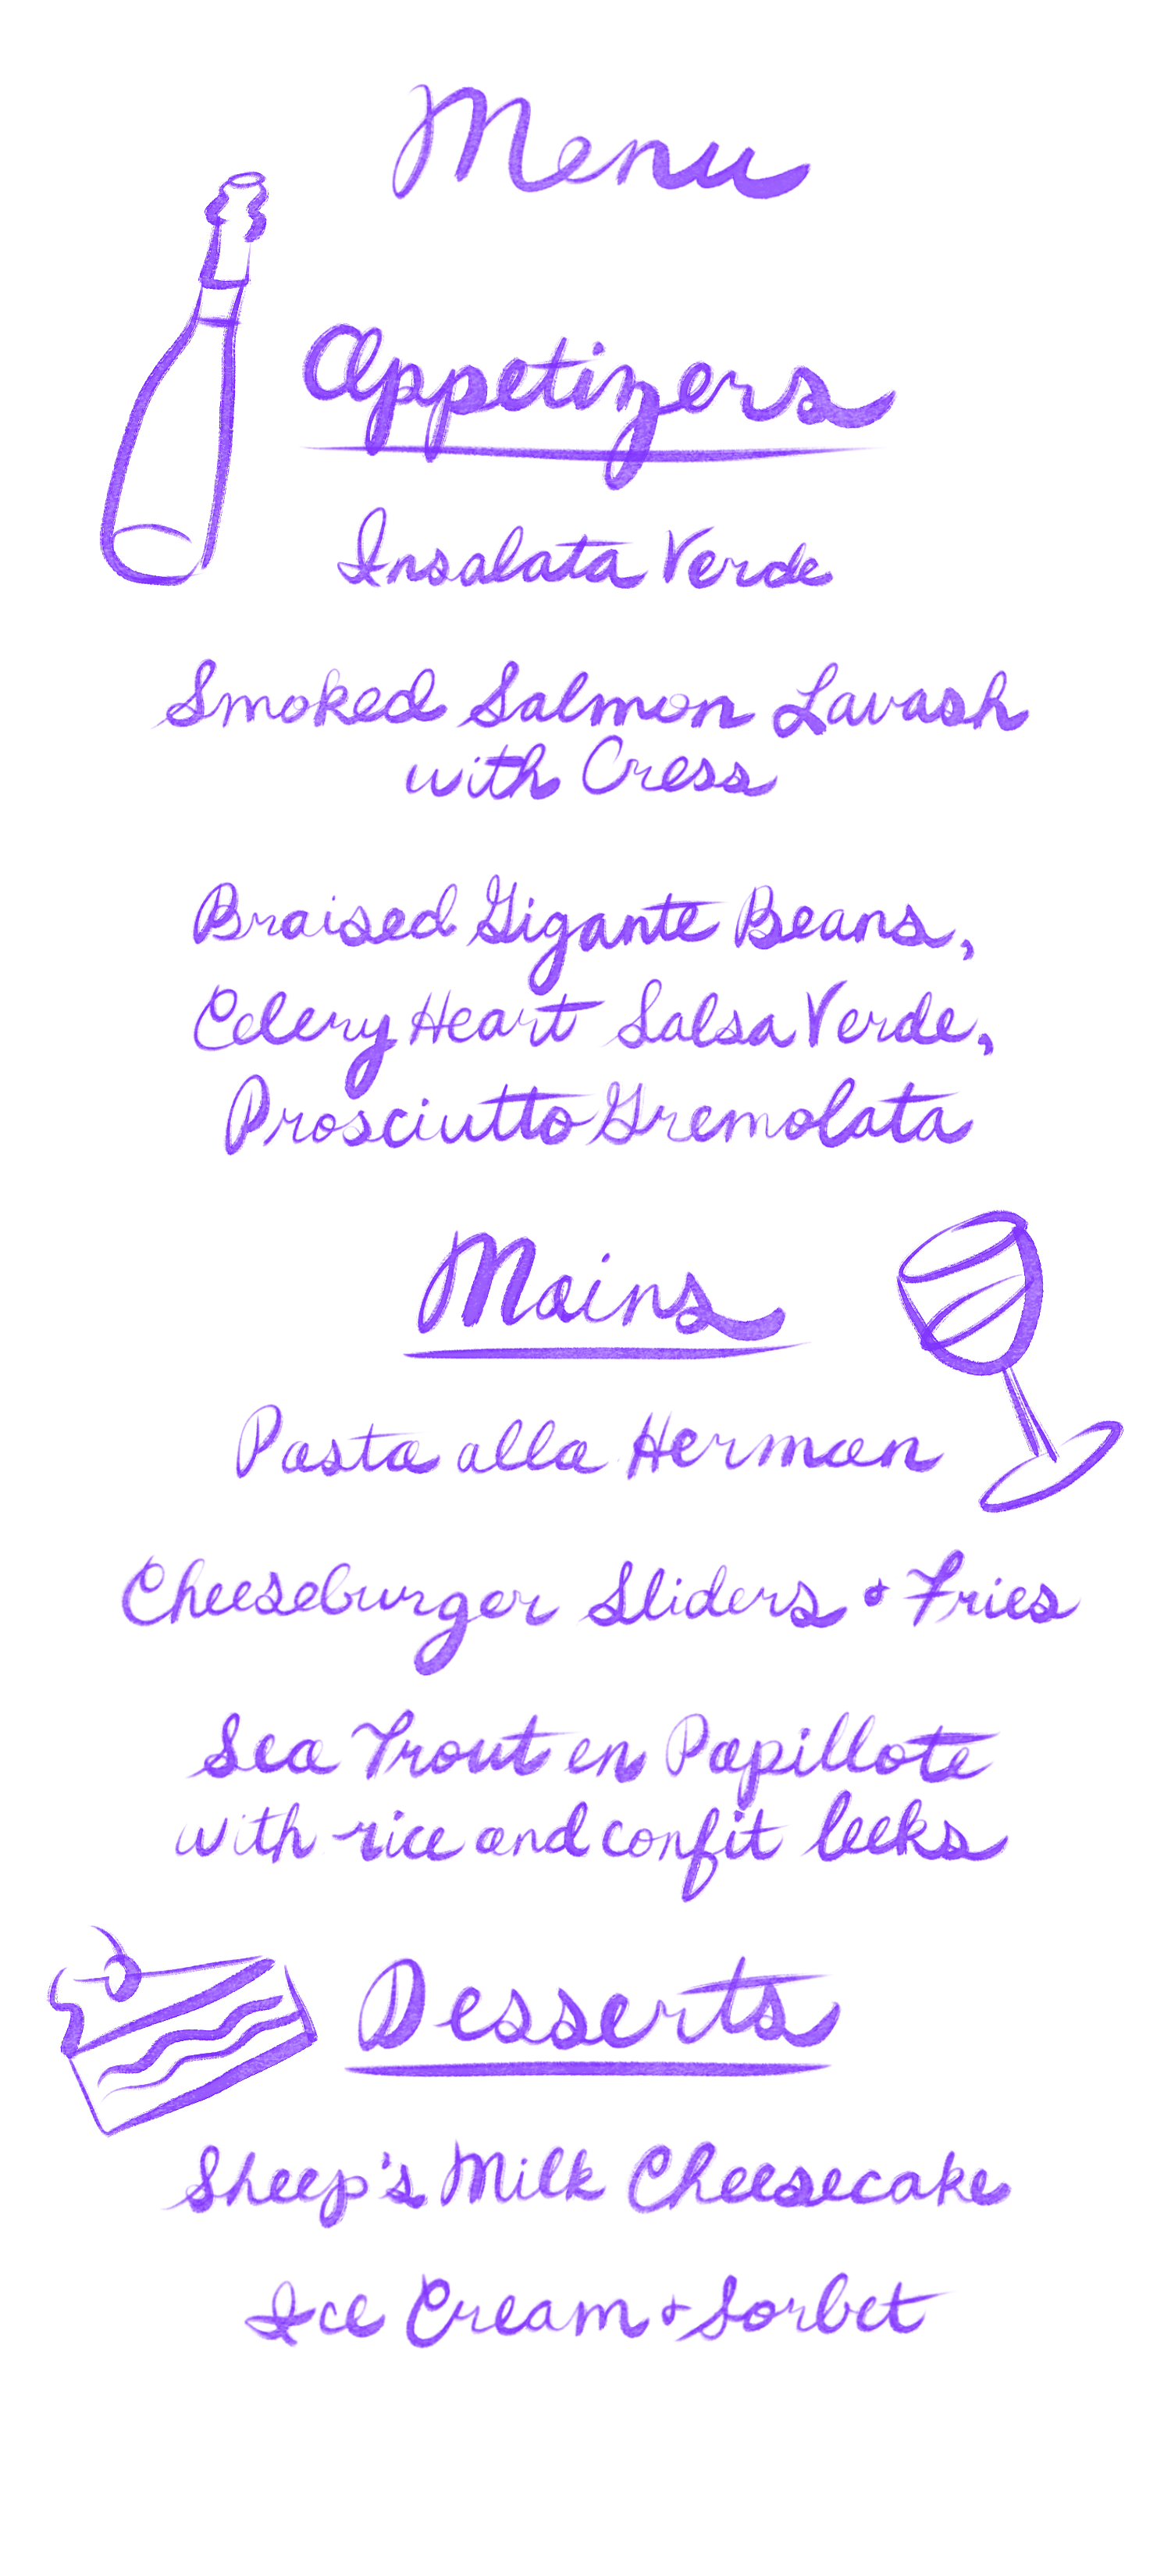 Menu
Appetizers
Insalata Verde
Smoked Salmon Lavash
with Cress
Braised Gigante Beans,
Celery Heart Salsa Verde,
Prosciutto Gremolata
Mains
Pasta alla Herman
Cheeseburger Sliders + Fries
Sea Trout en Papillote
with rice and confit leeks
Desserts
Sheep's Milk Cheesecake
Ice Cream + Sorbet